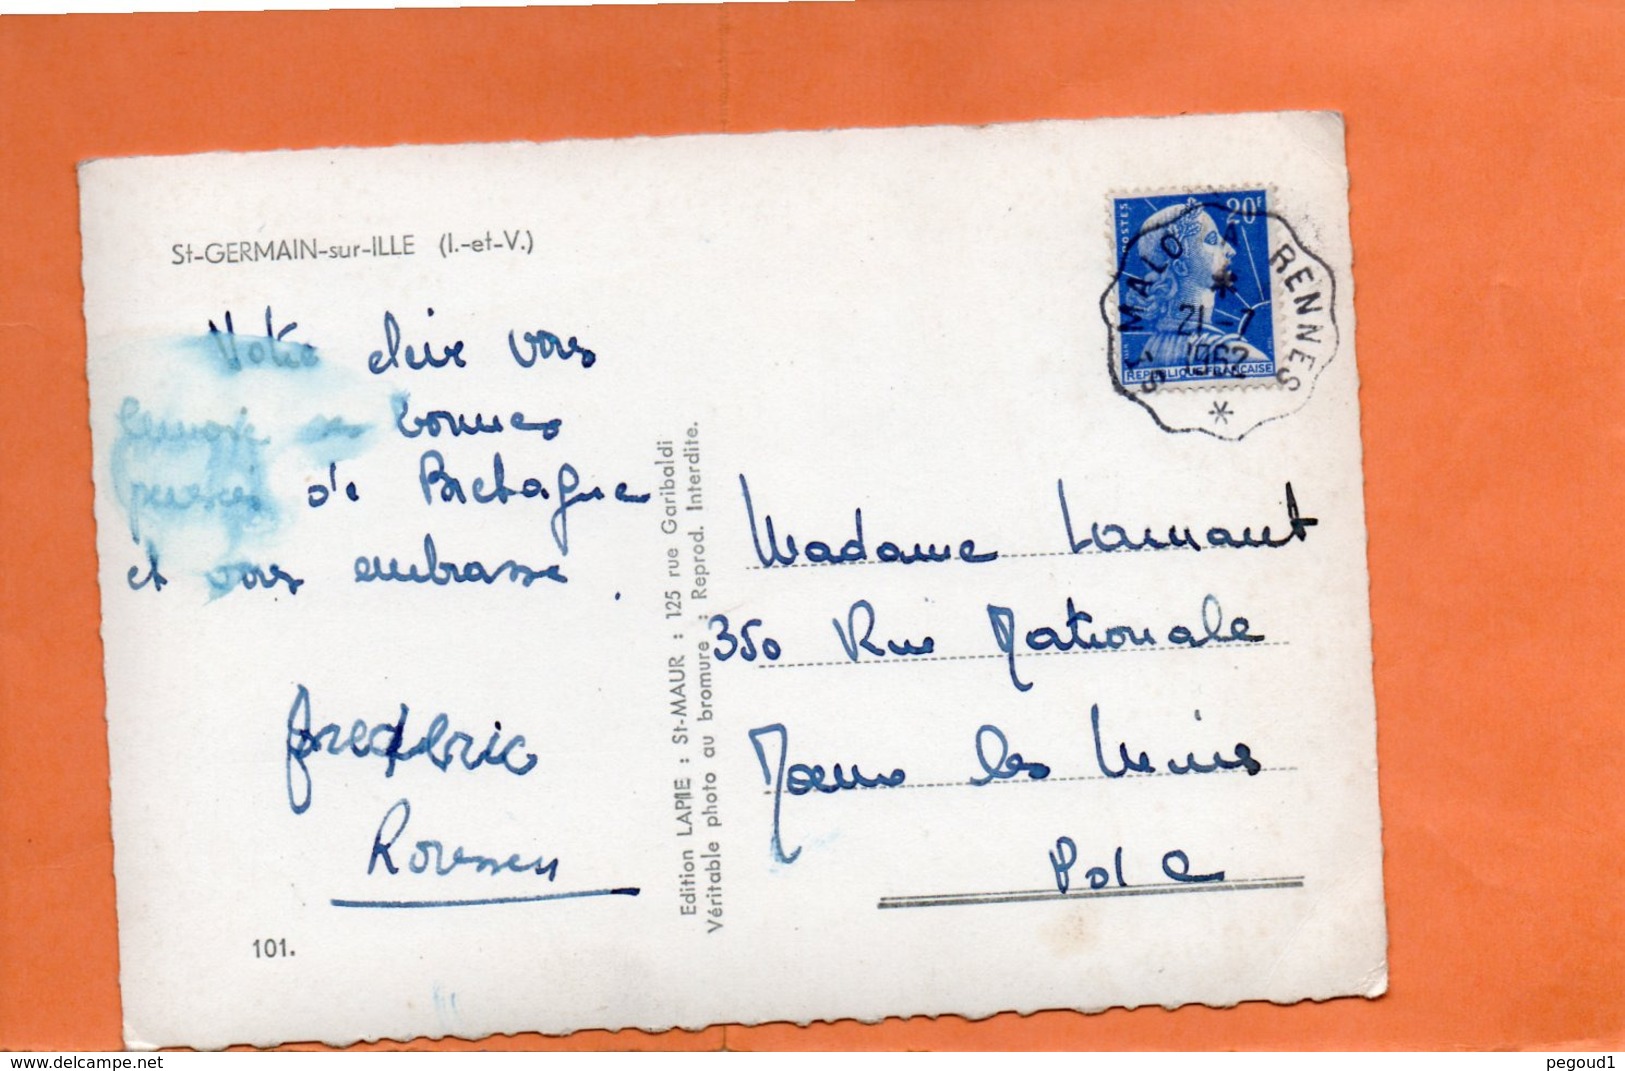 St-GERMAIN-sur-ILLE (I.-et-V.)
Votre élève vous
envoie ses bonnes
pensées de Bretagne
et vous embrasse.
frederic
101.
Edition LAPIE : St-MAUR : 125 rue Garibaldi
Véritable photo au bromure : Reprod. Interdite.
POSTES
20F
REPUBLIQUE FRANÇAISE
ST MALO A RENNES
21-7
1962
Madame Lamant
350 Rue Nationale
Noeux les Mines
Pd C
Delcampe.net
pegoud1